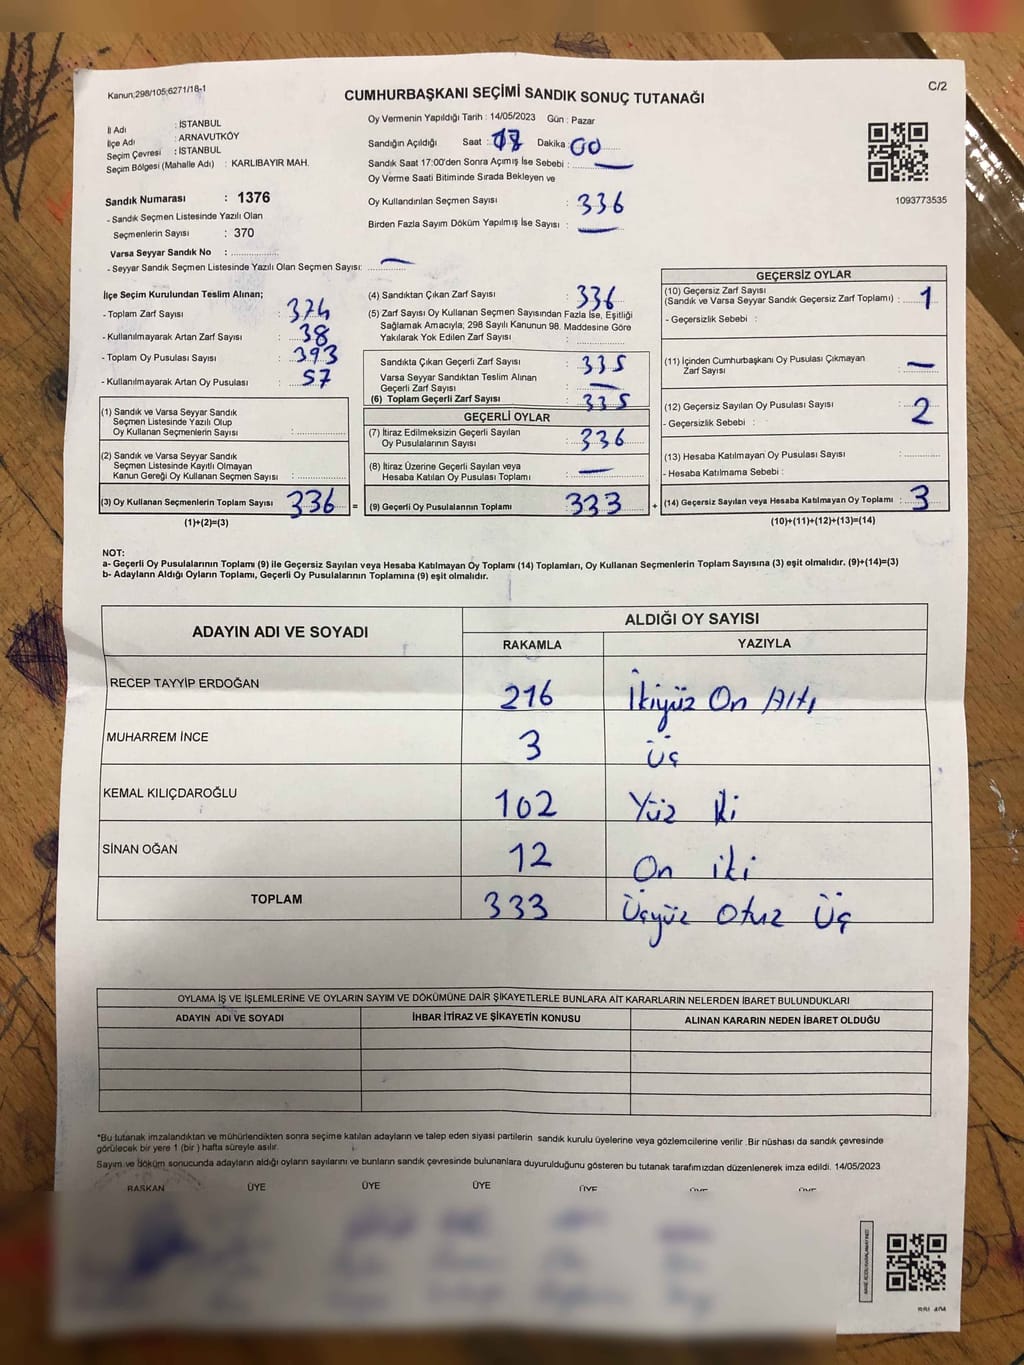 Kanun;298/105;6271/18-1
C/2
CUMHURBAŞKANI SEÇİMİ SANDIK SONUÇ TUTANAĞI
İl Adı : İSTANBUL
İlçe Adı : ARNAVUTKÖY
Seçim Çevresi : İSTANBUL
Seçim Bölgesi (Mahalle Adı) : KARLIBAYIR MAH.
Oy Vermenin Yapıldığı Tarih : 14/05/2023 Gün : Pazar
Sandığın Açıldığı Saat : Dakika : 00
Sandık Saat 17:00'den Sonra Açımış İse Sebebi : —
Oy Verme Saati Bitiminde Sırada Bekleyen ve
Oy Kullandırılan Seçmen Sayısı : 336
Birden Fazla Sayım Döküm Yapılmış İse Sayısı : —
1093773535
Sandık Numarası : 1376
- Sandık Seçmen Listesinde Yazılı Olan
Seçmenlerin Sayısı : 370
Varsa Seyyar Sandık No :
- Seyyar Sandık Seçmen Listesinde Yazılı Olan Seçmen Sayısı: —
İlçe Seçim Kurulundan Teslim Alınan;
- Toplam Zarf Sayısı : 374
- Kullanılmayarak Artan Zarf Sayısı : 38
- Toplam Oy Pusulası Sayısı : 393
- Kullanılmayarak Artan Oy Pusulası : 57
(1) Sandık ve Varsa Seyyar Sandık
Seçmen Listesinde Yazılı Olup
Oy Kullanan Seçmenlerin Sayısı :
(2) Sandık ve Varsa Seyyar Sandık
Seçmen Listesinde Kayıtlı Olmayan
Kanun Gereği Oy Kullanan Seçmen Sayısı :
(3) Oy Kullanan Seçmenlerin Toplam Sayısı 336 =
(1)+(2)=(3)
(4) Sandıktan Çıkan Zarf Sayısı : 336
(5) Zarf Sayısı Oy Kullanan Seçmen Sayısından Fazla İse, Eşitliği
Sağlamak Amacıyla; 298 Sayılı Kanunun 98. Maddesine Göre
Yakılarak Yok Edilen Zarf Sayısı :
Sandıkta Çıkan Geçerli Zarf Sayısı : 335
Varsa Seyyar Sandıktan Teslim Alınan
Geçerli Zarf Sayısı : —
(6) Toplam Geçerli Zarf Sayısı : 335
GEÇERLİ OYLAR
(7) İtiraz Edilmeksizin Geçerli Sayılan
Oy Pusulalarının Sayısı : 336
(8) İtiraz Üzerine Geçerli Sayılan veya
Hesaba Katılan Oy Pusulası Toplamı : —
(9) Geçerli Oy Pusulalarının Toplamı 333 +
GEÇERSİZ OYLAR
(10) Geçersiz Zarf Sayısı
(Sandık ve Varsa Seyyar Sandık Geçersiz Zarf Toplamı) : 1
- Geçersizlik Sebebi :
(11) İçinden Cumhurbaşkanı Oy Pusulası Çıkmayan
Zarf Sayısı : —
(12) Geçersiz Sayılan Oy Pusulası Sayısı : 2
- Geçersizlik Sebebi :
(13) Hesaba Katılmayan Oy Pusulası Sayısı :
- Hesaba Katılmama Sebebi :
(14) Geçersiz Sayılan veya Hesaba Katılmayan Oy Toplamı : 3
(10)+(11)+(12)+(13)=(14)
NOT:
a- Geçerli Oy Pusulalarının Toplamı (9) ile Geçersiz Sayılan veya Hesaba Katılmayan Oy Toplamı (14) Toplamları, Oy Kullanan Seçmenlerin Toplam Sayısına (3) eşit olmalıdır. (9)+(14)=(3)
b- Adayların Aldığı Oyların Toplamı, Geçerli Oy Pusulalarının Toplamına (9) eşit olmalıdır.
ADAYIN ADI VE SOYADI ALDIĞI OY SAYISI
RAKAMLA YAZIYLA
RECEP TAYYİP ERDOĞAN 216 İkiyüz On Altı
MUHARREM İNCE 3 üç
KEMAL KILIÇDAROĞLU 102 Yüz İki
SİNAN OĞAN 12 On iki
TOPLAM 333 Üçyüz Otuz Üç
OYLAMA İŞ VE İŞLEMLERİNE VE OYLARIN SAYIM VE DÖKÜMÜNE DAİR ŞİKAYETLERLE BUNLARA AİT KARARLARIN NELERDEN İBARET BULUNDUKLARI
ADAYIN ADI VE SOYADI İHBAR İTİRAZ VE ŞİKAYETİN KONUSU ALINAN KARARIN NEDEN İBARET OLDUĞU
*Bu tutanak imzalandıktan ve mühürlendikten sonra seçime katılan adayların ve talep eden siyasi partilerin sandık kurulu üyelerine veya gözlemcilerine verilir .Bir nüshası da sandık çevresinde
görülecek bir yere 1 (bir ) hafta süreyle asılır.
Sayım ve döküm sonucunda adayların aldığı oyların sayılarını ve bunların sandık çevresinde bulunanlara duyurulduğunu gösteren bu tutanak tarafımızdan düzenlenerek imza edildi. 14/05/2023
BAŞKAN ÜYE ÜYE ÜYE ÜYE